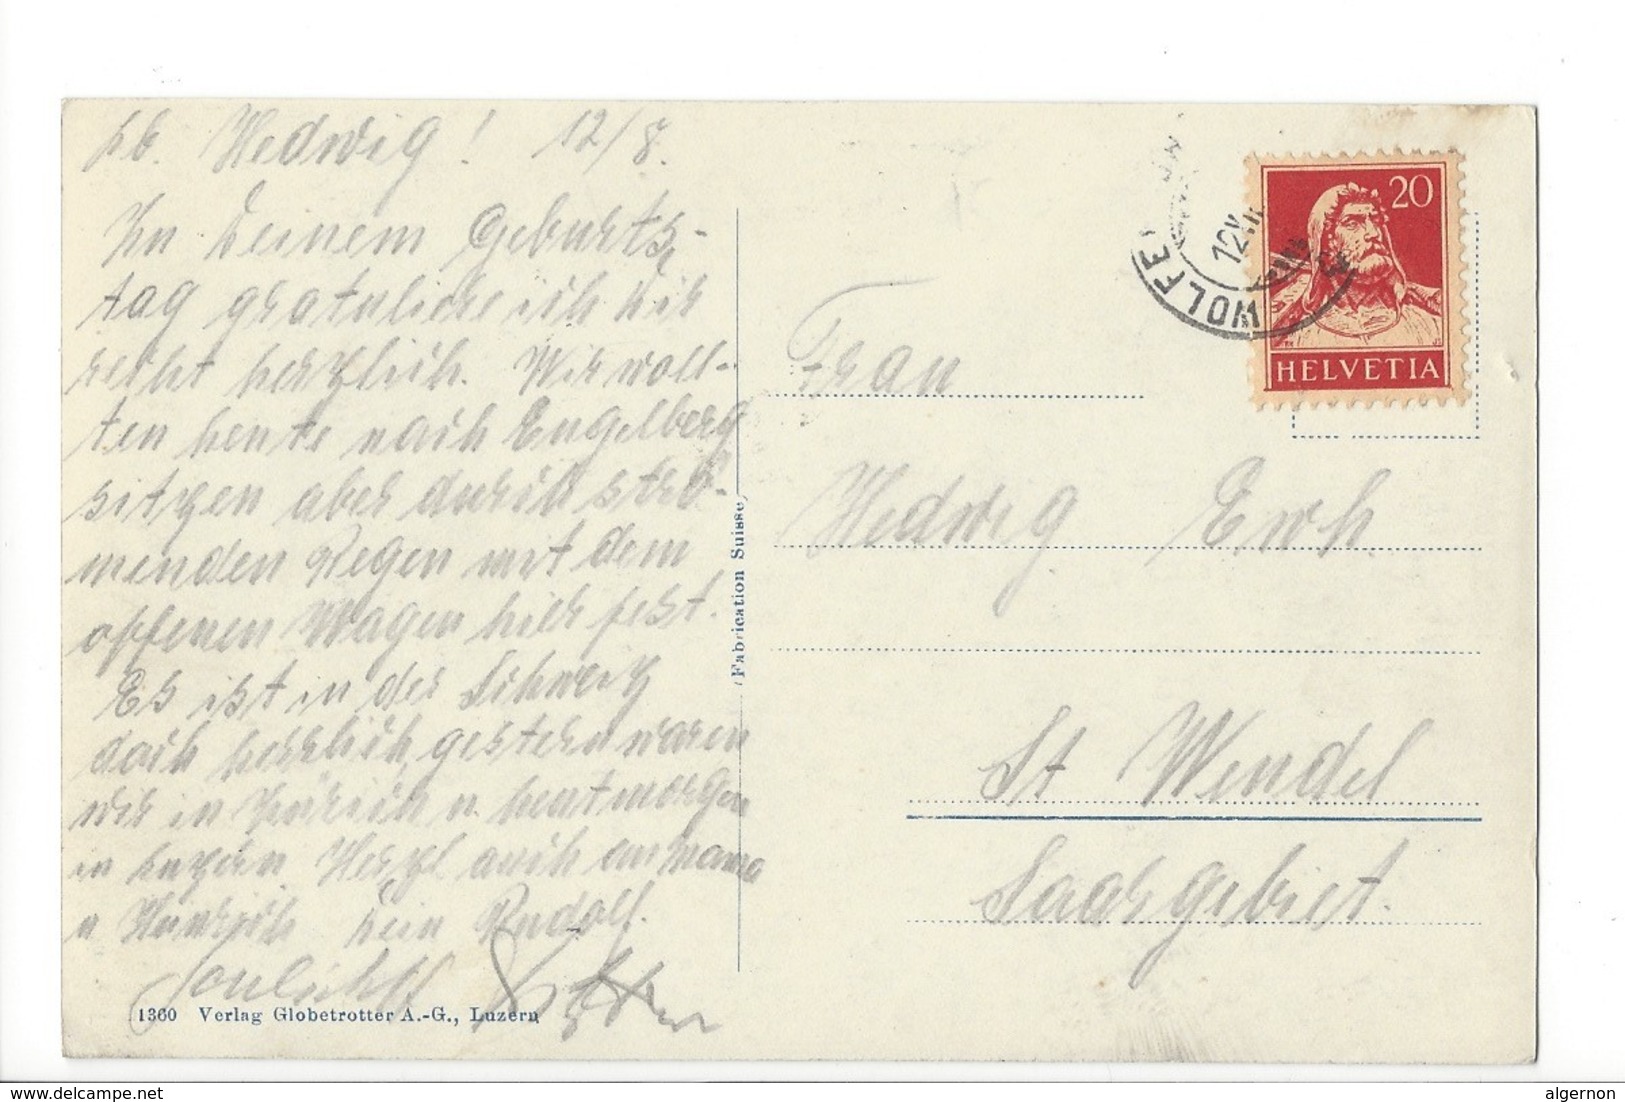 Lb. Hedwig! 12/8.
Zu Deinem Geburts-
tag gratuliere ich Dir
recht herzlich. Wir woll-
ten heute nach Engelberg
sitzen aber durch strö-
menden Regen mit dem
offenen Wagen hier fest.
Es ist in der Schweiz
doch herrlich, gestern waren
wir in Zürich u. heut morgen
in Luzern Herzl auch an Mama
u Heinrich Dein Rudolf.
1360 Verlag Globetrotter A.-G., Luzern
Fabrication Suisse
WOLFE
12V
20
HELVETIA
Frau
Hedwig
St Wendel
Saargebiet.
delcampe.net
algernon